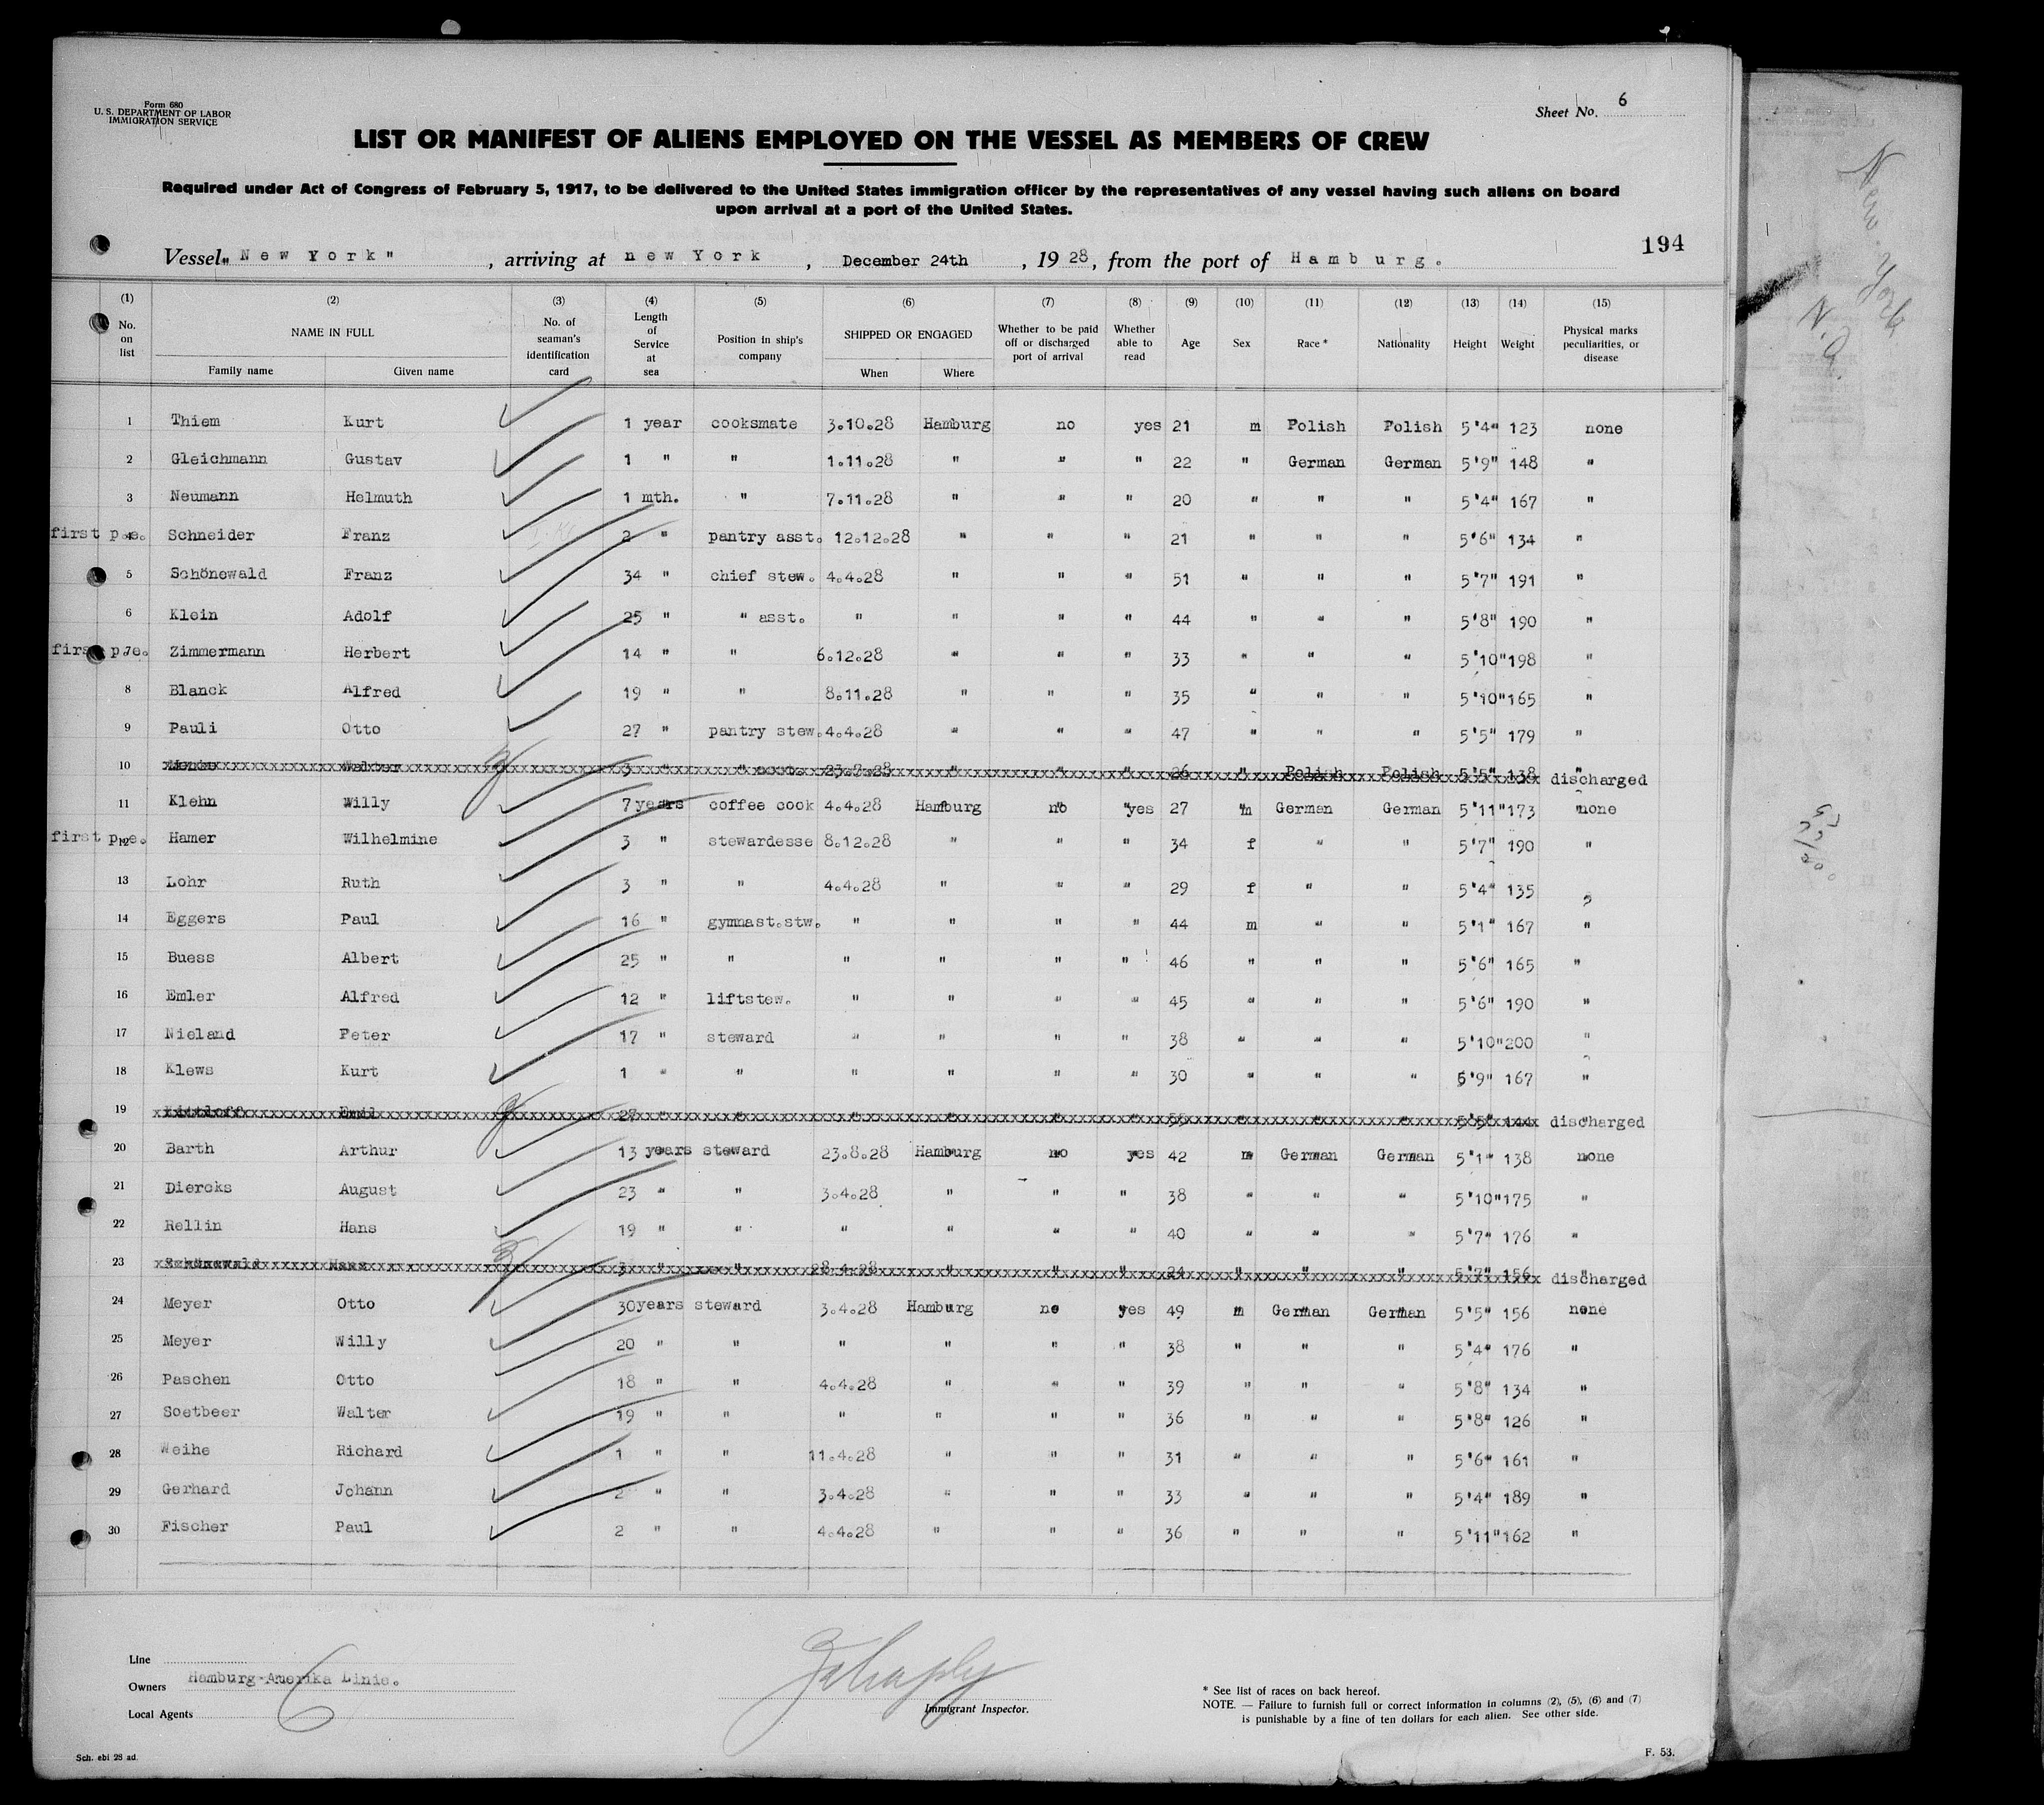 Form 680
U. S. DEPARTMENT OF LABOR
IMMIGRATION SERVICE
Sheet No. 6
LIST OR MANIFEST OF ALIENS EMPLOYED ON THE VESSEL AS MEMBERS OF CREW
Required under Act of Congress of February 5, 1917, to be delivered to the United States immigration officer by the representatives of any vessel having such aliens on board
upon arrival at a port of the United States.
194
Vessel "New York", arriving at new York, December 24th, 1928, from the port of Hamburg.
(1) (2) (3) (4) (5) (6) (7) (8) (9) (10) (11) (12) (13) (14) (15)
No. on list NAME IN FULL Family name Given name No. of seaman's identification card Length of Service at sea Position in ship's company SHIPPED OR ENGAGED When Where Whether to be paid off or discharged port of arrival Whether able to read Age Sex Race * Nationality Height Weight Physical marks peculiarities, or disease
1 Thiem Kurt 1 year cooksmate 3.10.28 Hamburg no yes 21 m Polish Polish 5'4" 123 none
2 Gleichmann Gustav 1 " " 1.11.28 " " " 22 " German German 5'9" 148 "
3 Neumann Helmuth 1 mth. " 7.11.28 " " " 20 " " " 5'4" 167 "
first p.e. 4 Schneider Franz 2 " pantry asst. 12.12.28 " " " 21 " " " 5'6" 134 "
5 Schönewald Franz 34 " chief stew. 4.4.28 " " " 51 " " " 5'7" 191 "
6 Klein Adolf 25 " " asst. " " " " 44 " " " 5'8" 190 "
first p.e. 7 Zimmermann Herbert 14 " " 6.12.28 " " " 33 " " " 5'10" 198 "
8 Blanck Alfred 19 " " 8.11.28 " " " 35 " " " 5'10" 165 "
9 Pauli Otto 27 " pantry stew. 4.4.28 " " " 47 " " " 5'5" 179 "
10 Walter 3 " " " " " 26 " Polish Polish 5'5" 138 discharged
11 Klehn Willy 7 years coffee cook 4.4.28 Hamburg no yes 27 m German German 5'11" 173 none
first p.e. 12 Hamer Wilhelmine 3 " stewardesse 8.12.28 " " " 34 f " " 5'7" 190 "
13 Lohr Ruth 3 " " 4.4.28 " " " 29 f " " 5'4" 135 "
14 Eggers Paul 16 " gymnast.stw. " " " " 44 m " " 5'1" 167 "
15 Buess Albert 25 " " " " " " 46 " " " 5'6" 165 "
16 Emler Alfred 12 " liftstew. " " " " 45 " " " 5'6" 190 "
17 Nieland Peter 17 " steward " " " " 38 " " " 5'10" 200 "
18 Klews Kurt 1 " " " " " " 30 " " " 5'9" 167 "
19 Emil 27 " " " " " " " " " 5'5" 144 discharged
20 Barth Arthur 13 years steward 23.8.28 Hamburg no yes 42 m German German 5'1" 138 none
21 Diercks August 23 " " 3.4.28 " " " 38 " " " 5'10" 175 "
22 Rellin Hans 19 " " " " " " 40 " " " 5'7" 176 "
23 Schönewald Hans 3 " " 28.4.28 " " " 24 " " " 5'7" 156 discharged
24 Meyer Otto 30 years steward 3.4.28 Hamburg no yes 49 m German German 5'5" 156 none
25 Meyer Willy 20 " " " " " " 38 " " " 5'4" 176 "
26 Paschen Otto 18 " " 4.4.28 " " " 39 " " " 5'8" 134 "
27 Soetbeer Walter 19 " " " " " " 36 " " " 5'8" 126 "
28 Weihe Richard 1 " " 11.4.28 " " " 31 " " " 5'6" 161 "
29 Gerhard Johann 2 " " 3.4.28 " " " 33 " " " 5'4" 189 "
30 Fischer Paul 2 " " 4.4.28 " " " 36 " " " 5'11" 162 "
Line
Owners Hamburg-Amerika Linie.
Local Agents
6
Immigrant Inspector.
* See list of races on back hereof.
NOTE. — Failure to furnish full or correct information in columns (2), (5), (6) and (7)
is punishable by a fine of ten dollars for each alien. See other side.
Sch. ebi 28 ad.
F. 53.
New York
N.Y.